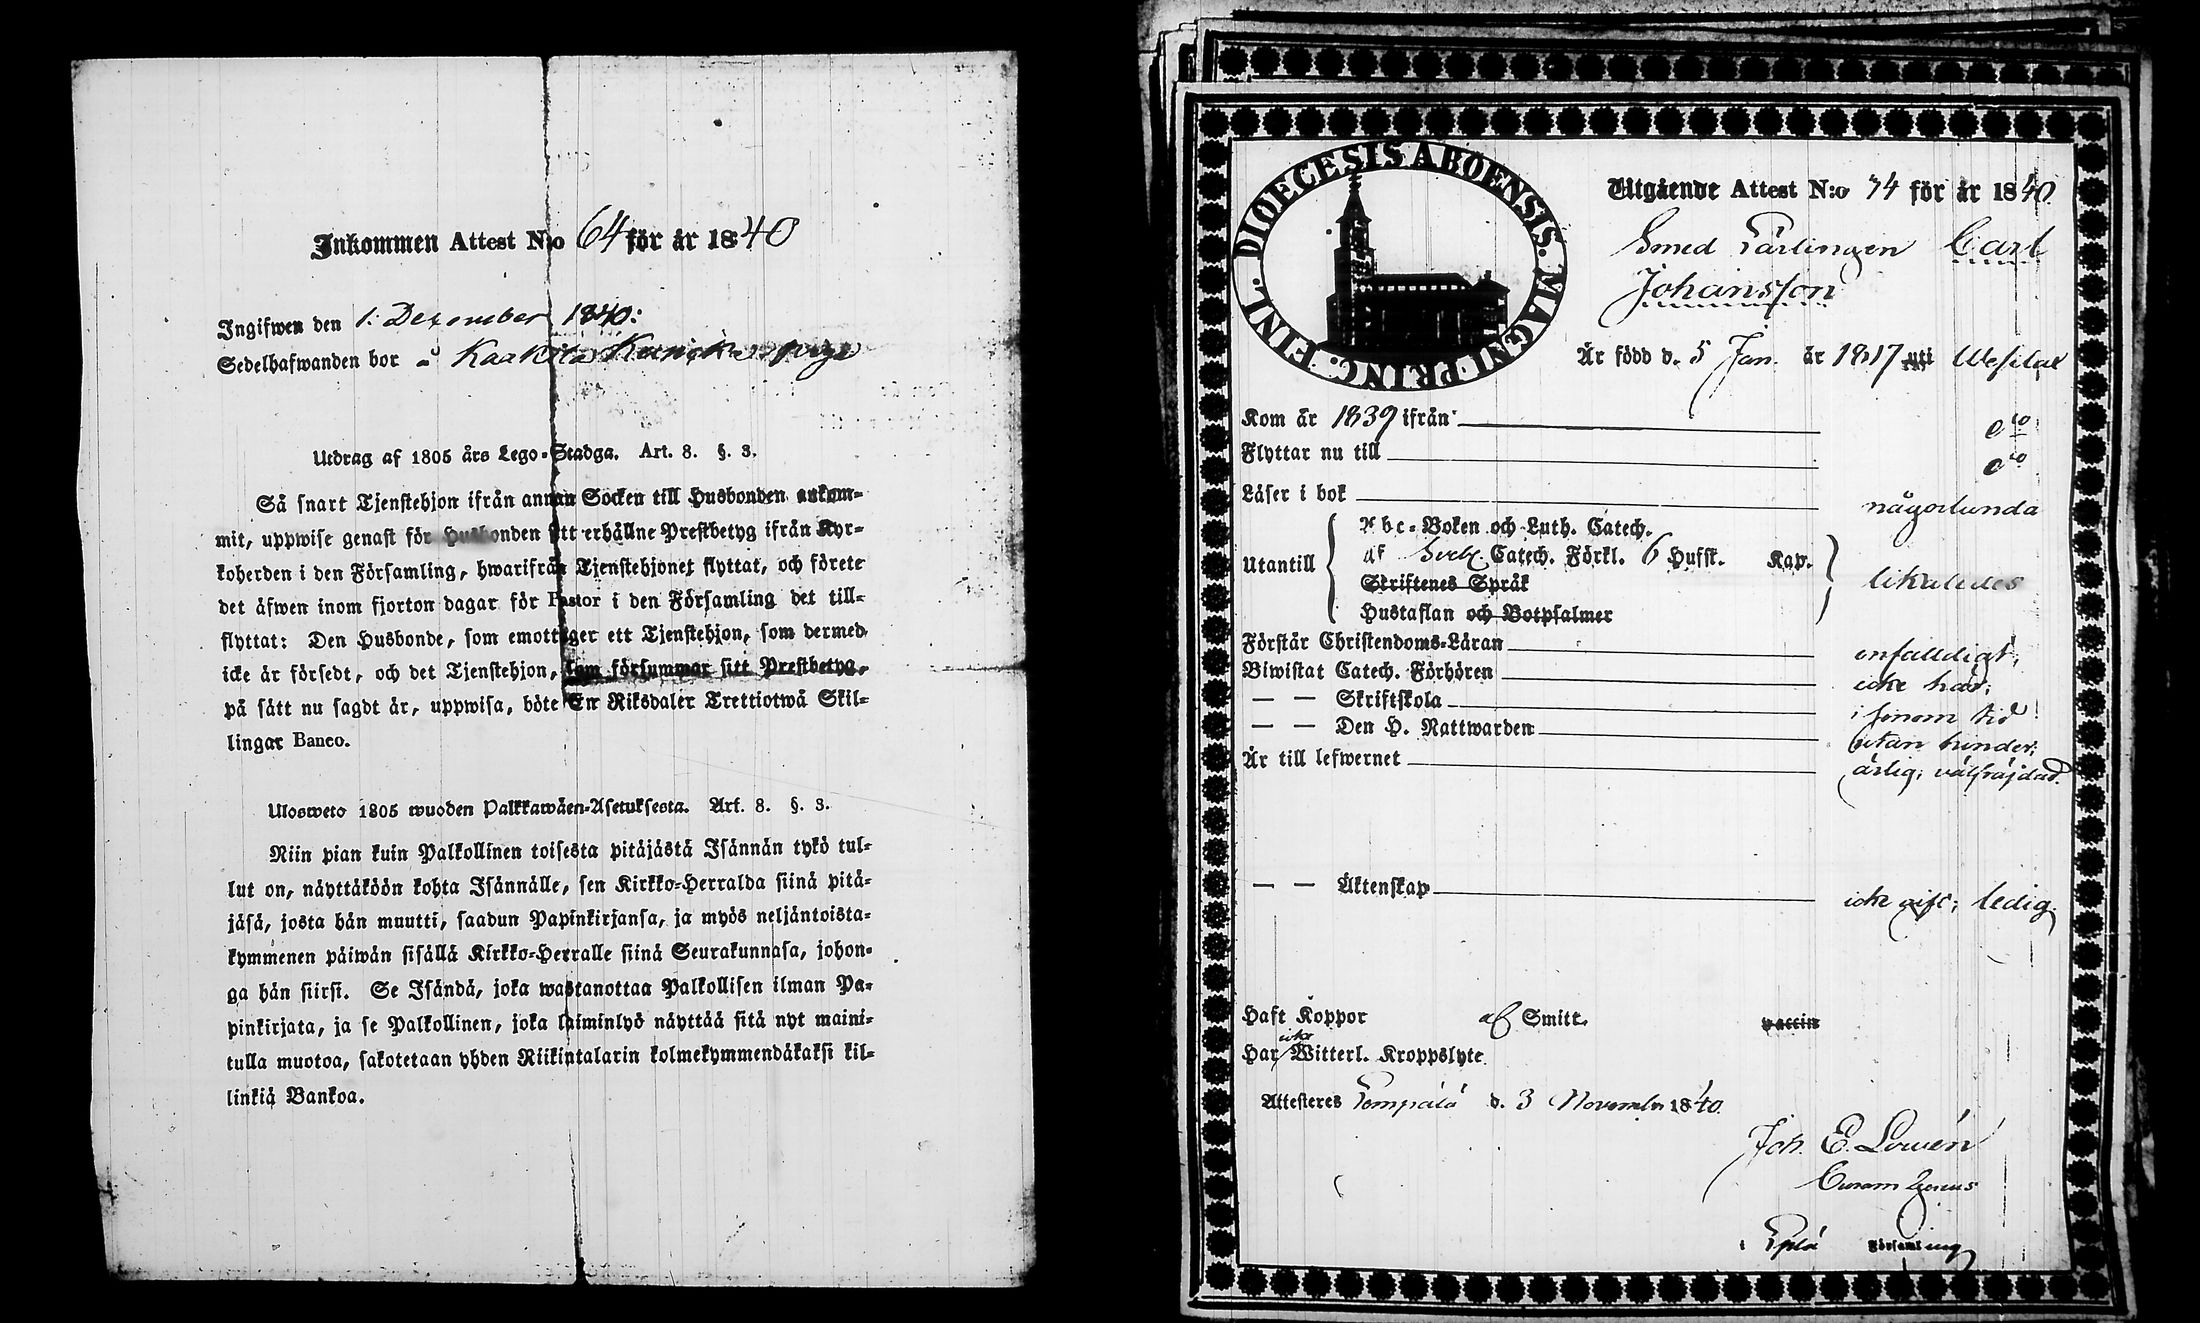 Inkommen Attest N:o 64 för år 1840
Ingifwen den 1: December 1840:
Sedelhafwanden bor å Kaakila
Utdrag af 1805 års Lego-Stadga. Art. 8. §. 3.
Så snart Tjenstehjon ifrån annan Socken till Husbonden ankom-
mit, uppwise genast för Husbonden sitt erhållne Prestbetyg ifrån Kyr-
koherden i den Församling, hwarifrån Tjenstehjonet flyttat, och förete
det äfwen inom fjorton dagar för Pastor i den Församling det till-
flyttat: Den Husbonde, som emottager ett Tjenstehjon, som dermed
icke är försedt, och det Tjenstehjon, som försummar sitt Prestbetyg,
på sätt nu sagdt är, uppwisa, böte En Riksdaler Trettiotwå Skil-
lingar Banco.
Ulosweto 1805 wuoden Palkkawäen-Asetuksesta. Art. 8. §. 3.
Niin pian kuin Palkollinen toisesta pitäjästä Isännän tykö tul-
lut on, näyttäköön kohta Isännälle, sen Kirkko-Herralda siinä pitä-
jäsä, josta hän muutti, saadun Papinkirjansa, ja myös neljäntoista-
kymmenen päiwän sisällä Kirkko-Herralle siinä Seurakunnasa, johon-
ga hän siirsi. Se Isändä, joka wastanottaa Palkollisen ilman Pa-
pinkirjata, ja se Palkollinen, joka laiminlyö näyttää sitä nyt maini-
tulla muotoa, sakotetaan yhden Riikintalarin kolmekymmendäkaksi kil-
linkiä Bankoa.
DIOECESIS ABOENSIS. MAGNI PRINC. FINL.
Utgående Attest N:o 74 för år 1840
Smed Lärlingen Carl
Johansson
Är född d. 5 Jan. år 1817 uti Wesilax
Kom år 1839 ifrån
Flyttar nu till
Läser i bok någorlunda
Utantill Abc-Boken och Luth. Catech.
af Sveb. Catech. Förkl. 6 Hufst. Kap. likaledes
Skriftenes Språk
Hustaflan och Botpsalmer
Förstår Christendoms-Läran enfalldigt;
Biwistat Catech. Förhören icke här;
— — Skriftskola i sinom tid
— — Den H. Nattwarden utan hinder;
Är till lefwernet ärlig; välfräjdad.
— — Äktenskap icke gift; ledig.
Haft Koppor af Smitt. vaccin
Har icke Witterl. Kroppslyte
Attesteres Lempälä d. 3 November 1840.
Joh. E. Lovén
Curam Gerens
i Lplä Församling